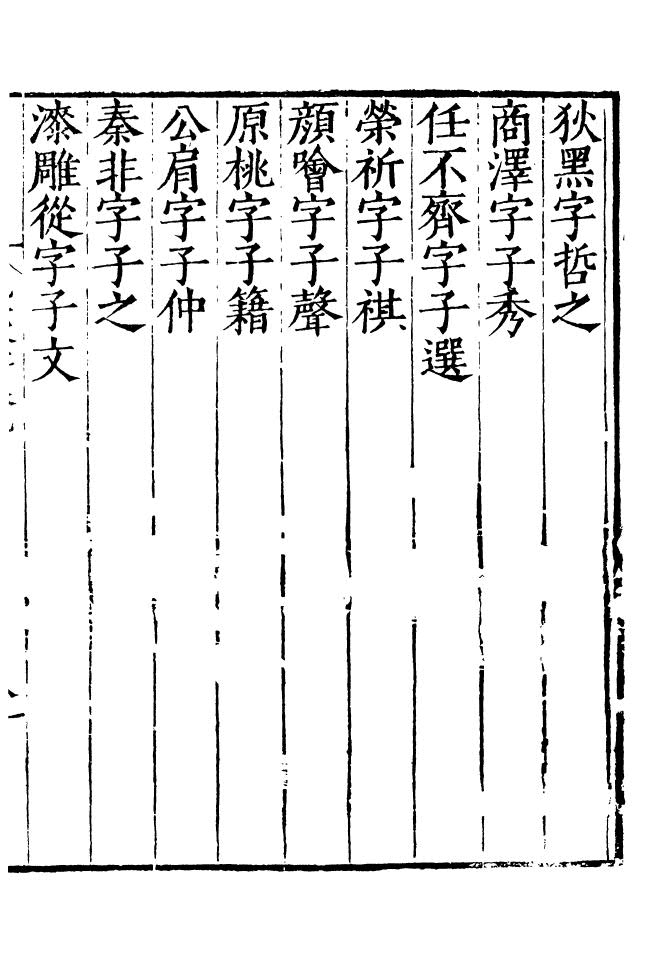 狄黑字哲之
商澤字子秀
任不齊字子選
榮祈字子祺
顔噲字子聲
原桃字子籍
公肩字子仲
秦非字子之
漆雕從字子文